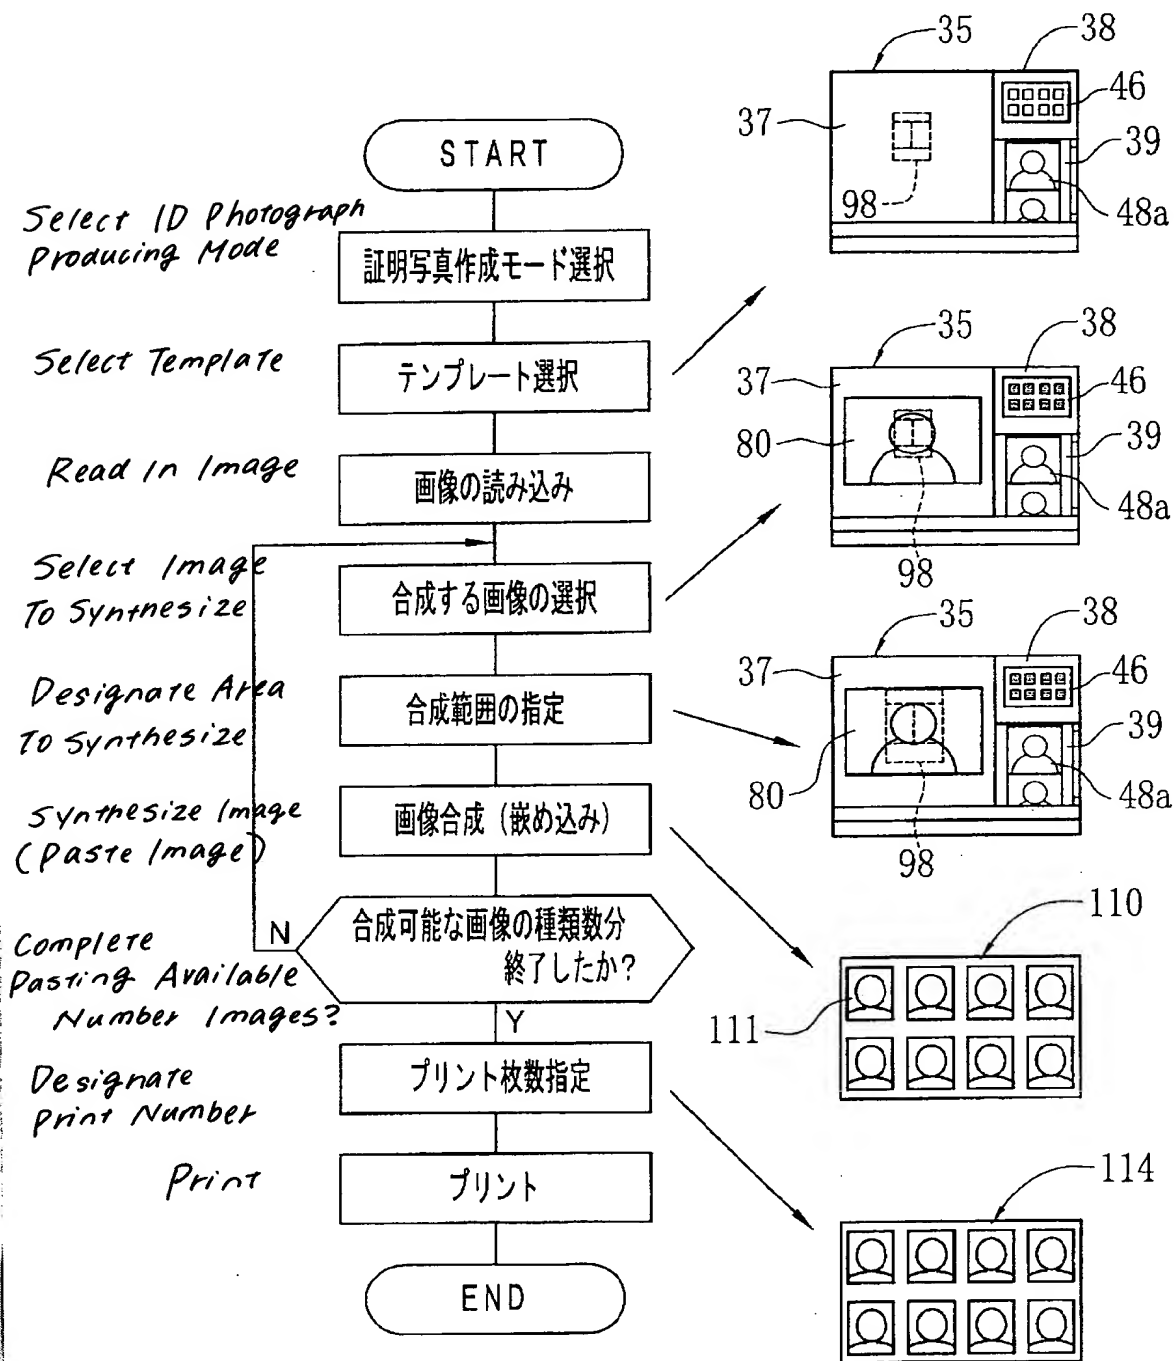 START
Select ID Photograph
Producing Mode
証明写真作成モード選択
Select Template
テンプレート選択
Read In Image
画像の読み込み
Select Image
To Synthesize
合成する画像の選択
Designate Area
To Synthesize
合成範囲の指定
Synthesize Image
(Paste Image)
画像合成(嵌め込み)
Complete
Pasting Available
Number Images?
合成可能な画像の種類数分
終了したか?
N
Y
Designate
Print Number
プリント枚数指定
Print
プリント
END
35
38
46
37
39
98
48a
35
38
37
46
80
39
48a
98
35
38
37
46
39
80
48a
98
110
111
114